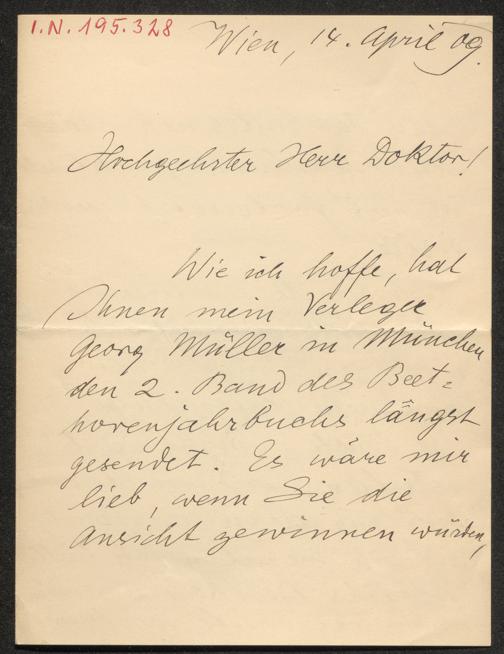 I.N. 195.328
Wien, 14. April 09.
Hochgeehrter Herr Doktor!
Wie ich hoffe, hat
Ihnen mein Verleger
Georg Müller in München
den 2. Band des Beet=
hovenjahrbuchs längst
gesendet. Es wäre mir
lieb, wenn Sie die
Ansicht gewinnen würden,